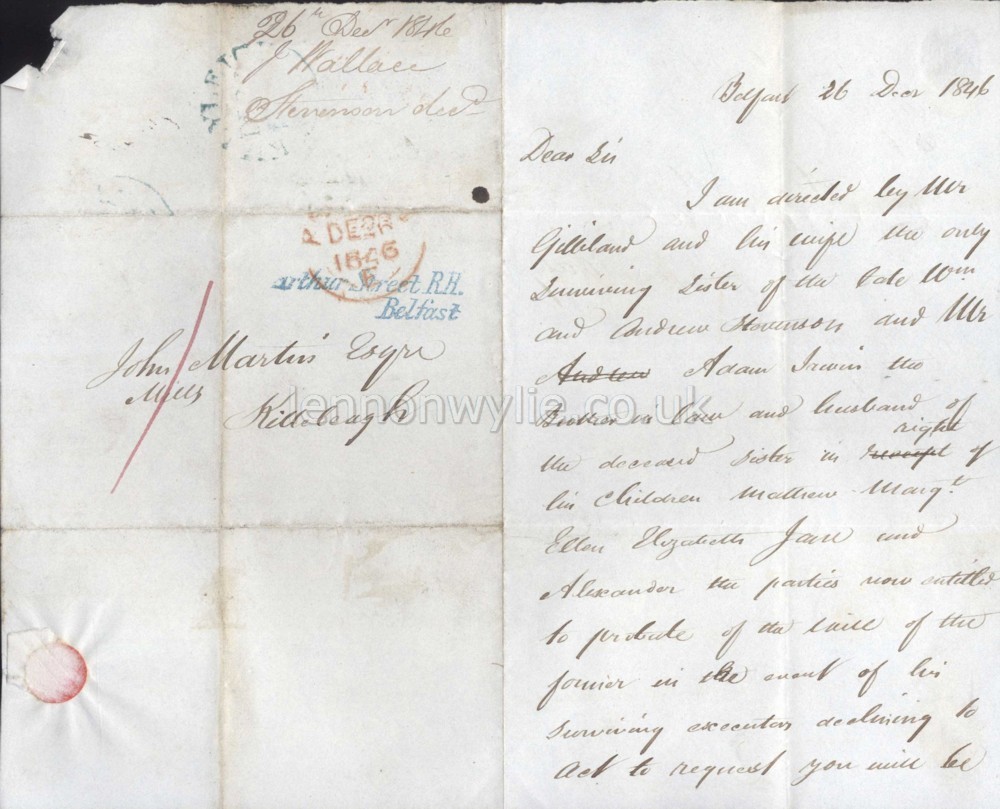 26th Decr 1846
J Wallace
Stevenson decd
A DE 28
1846
Arthur Street R.H.
Belfast
John Martin Esqre
Mills
Killeleagh
lennonwylie.co.uk
Belfast 26 Decr 1846
Dear Sir
I am directed by Mr
Gilliland and his wife the only
surviving sister of the late Wm
and Andrew Stevenson and Mr
Andrew Adam Irwin the
Brother in law and husband of
right
the deceased sister in receipt of
his children Mathew Margt.
Ellen Elizabeth Jane and
Alexander the parties now entitled
to probate of the will of the
former in the event of his
surviving executors declining to
act to request you will be